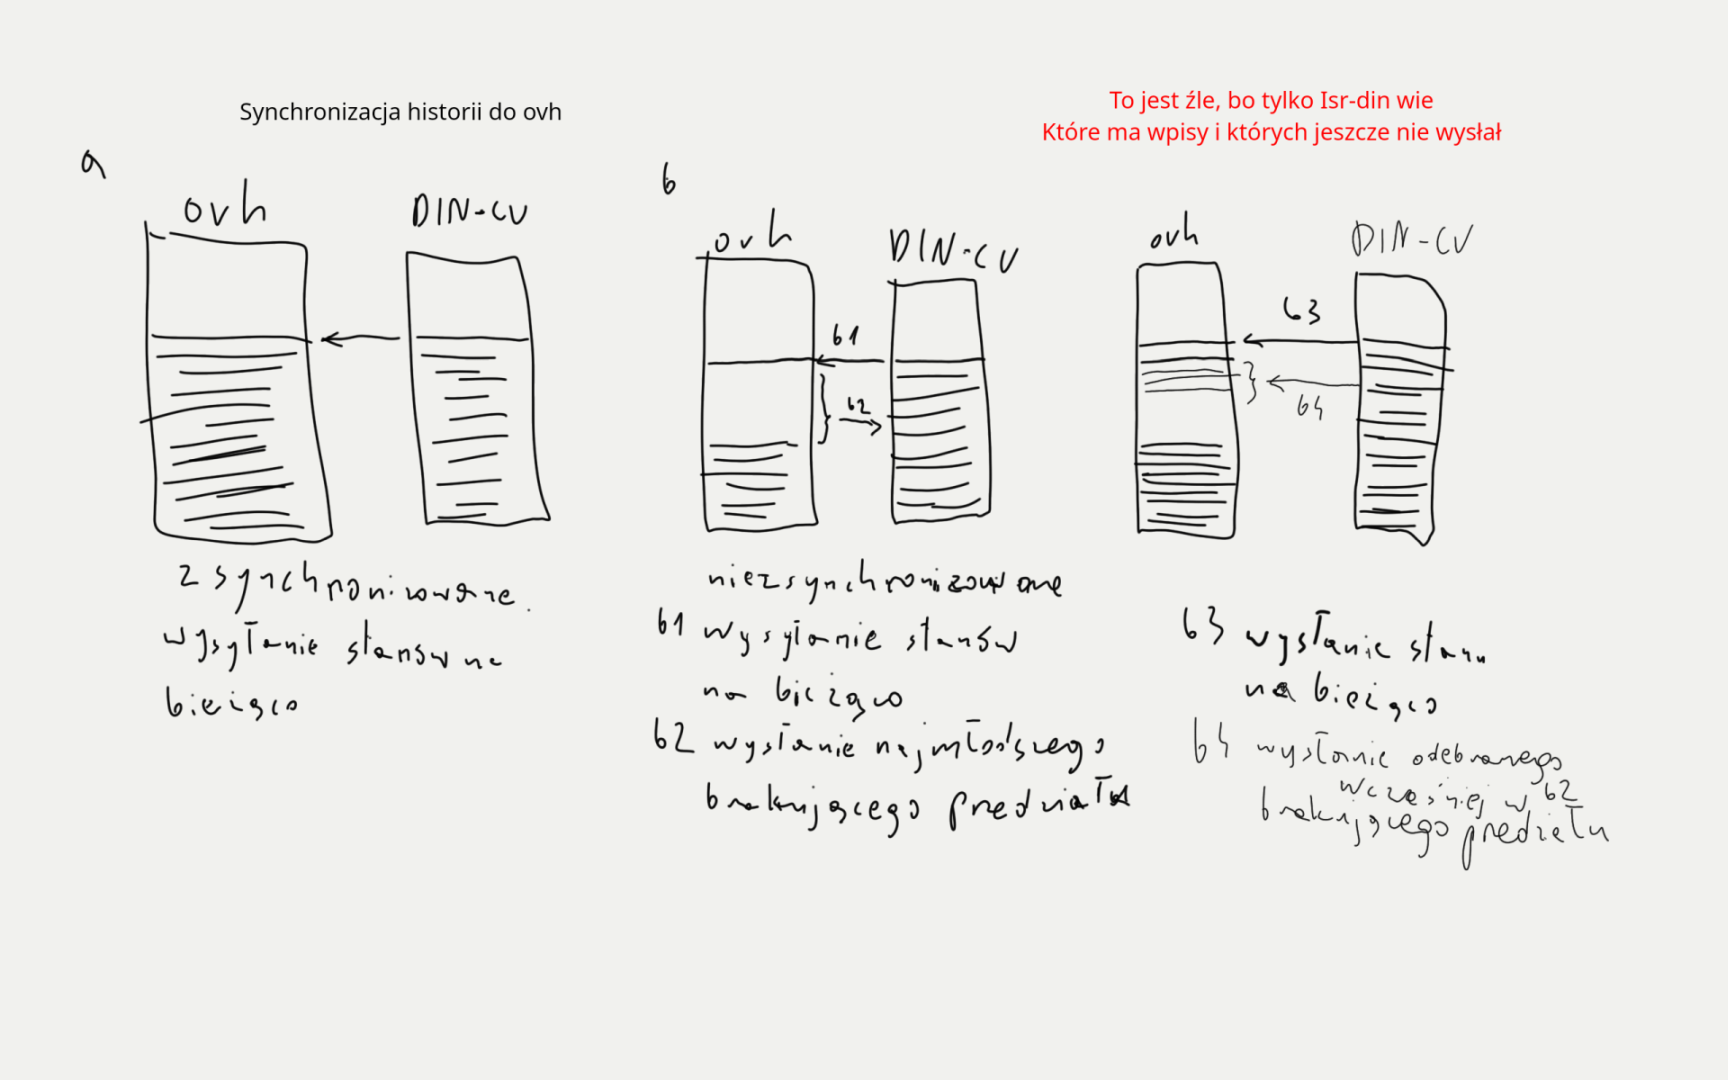 Synchronizacja historii do ovh
To jest źle, bo tylko Isr-din wie
Które ma wpisy i których jeszcze nie wysłał
a
ovh
DIN-CV
zsynchronizowane.
wysyłanie stanów na
bieżąco
b
ovh
DIN-CV
b1
b2
niezsynchronizowane
b1 wysyłanie stanów
na bieżąco
b2 wysłanie najmłodszego
brakującego przedziału
ovh
DIN-CV
b3
b4
b3 wysłanie stanu
na bieżąco
b4 wysłanie odebranego
wcześniej w b2
brakującego przedziału